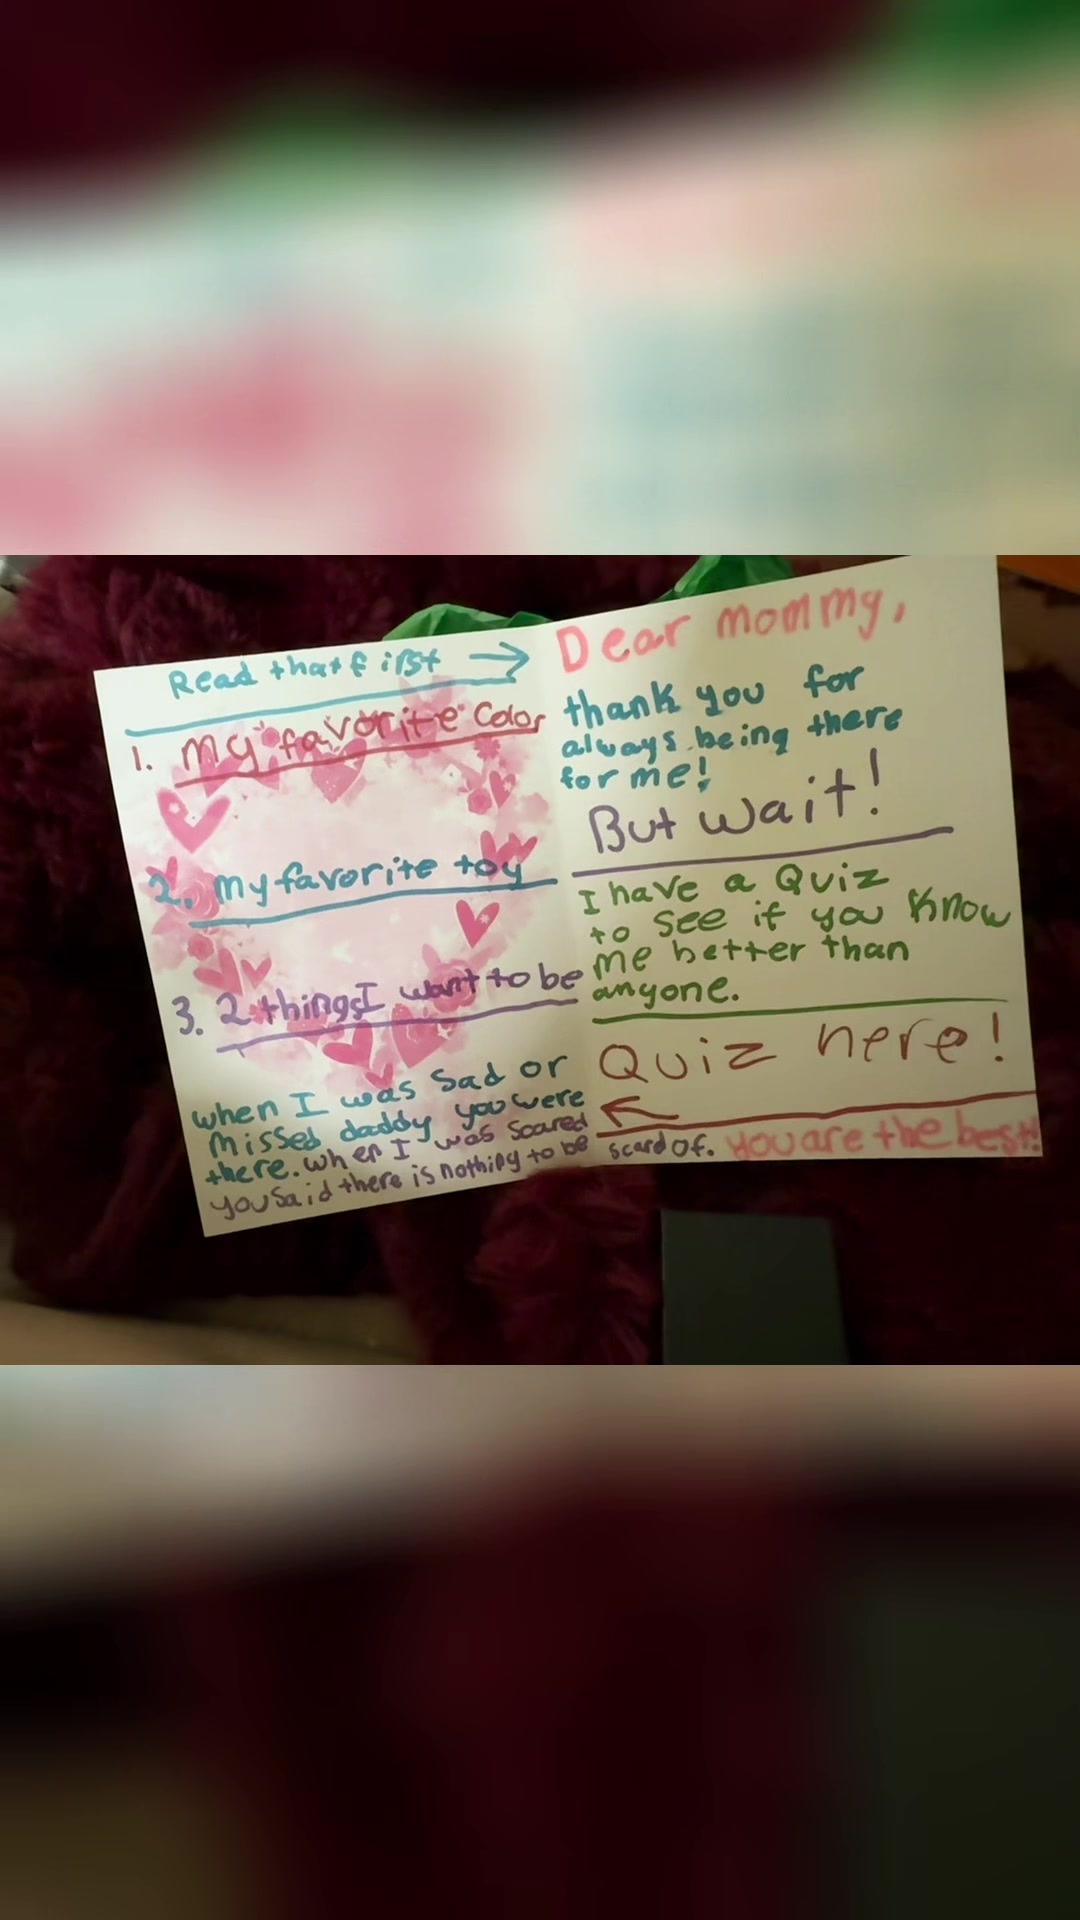 Read that first →
1. my favorite color
2. my favorite toy
3. 2 things I want to be
when I was Sad or
missed daddy you were
there. when I was scared
you said there is nothing to be
Dear mommy,
thank you for
always being there
for me!
But wait!
I have a Quiz
to see if you know
me better than
anyone.
Quiz here!
←
scard of. you are the best!